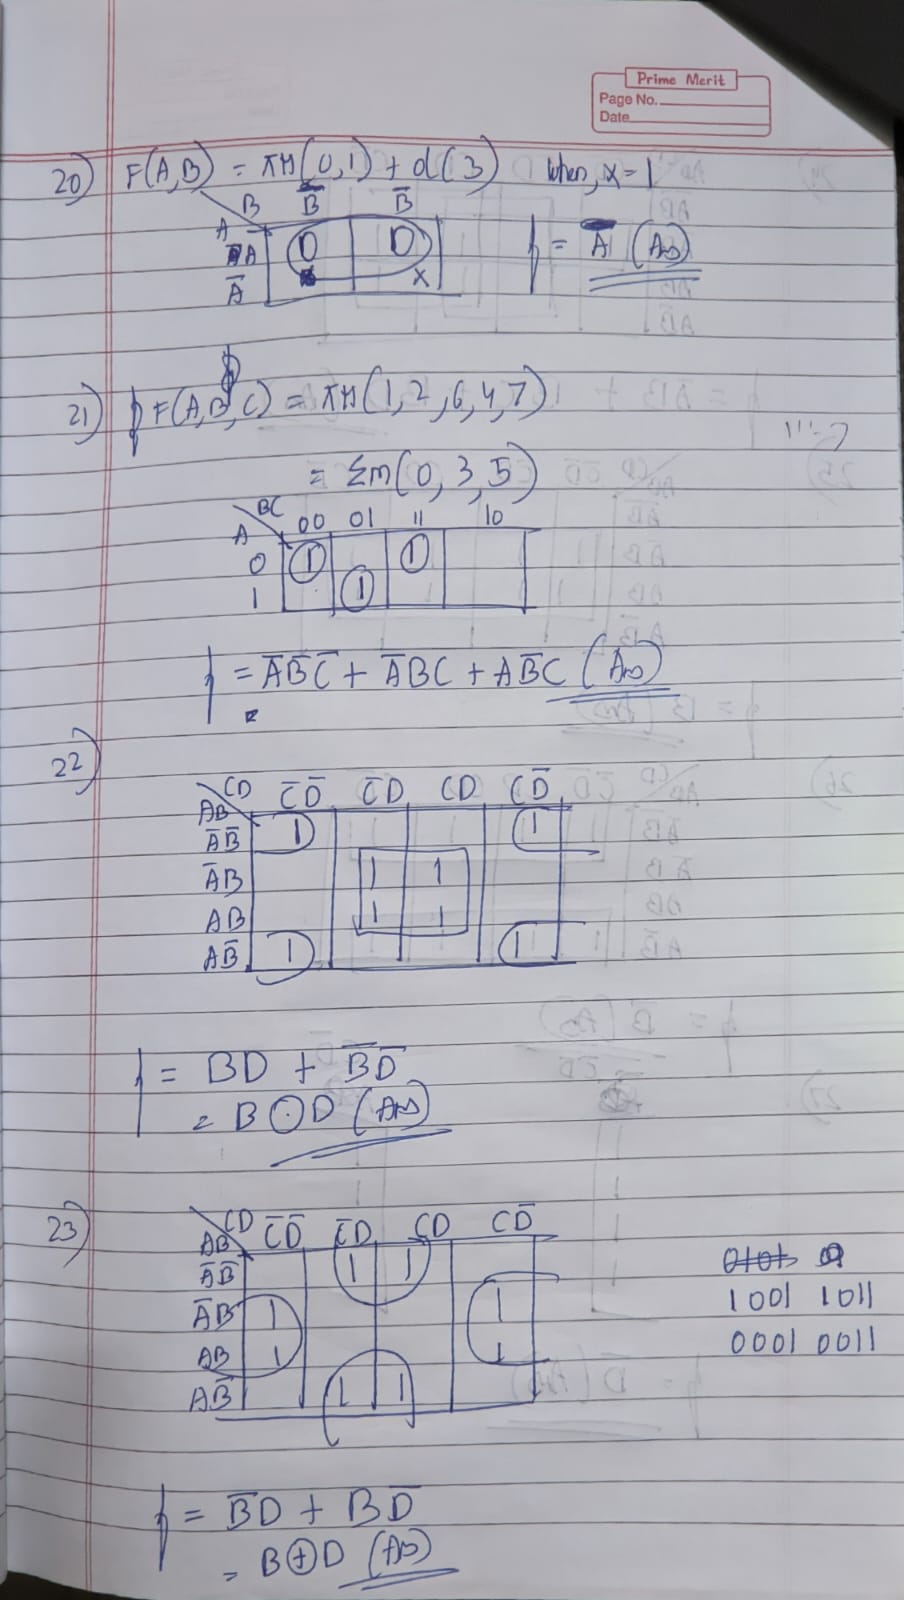 Prime Merit
Page No.
Date
20) F(A,B) = πM(0,1) + d(3) when, x = 1
B B̅ B̅
A
A 0 0 f = A (Ans)
A̅ x
21) f F(A,B,C) = πM(1,2,6,4,7)
= Σm(0,3,5)
BC 00 01 11 10
A
0 1 1
1 1
f = A̅B̅C̅ + A̅BC + AB̅C (Ans)
22)
CD C̅D̅ C̅D CD CD̅
AB
A̅B̅ 1 1
A̅B 1 1
AB 1 1
AB̅ 1 1
f = BD + B̅D̅
= B⊙D (Ans)
23)
CD C̅D̅ C̅D CD CD̅
AB
A̅B̅ 1 1
A̅B 1 1 1001 1011
AB 1 1 0001 0011
AB̅ 1 1
f = B̅D + BD̅
= B⊕D (Ans)